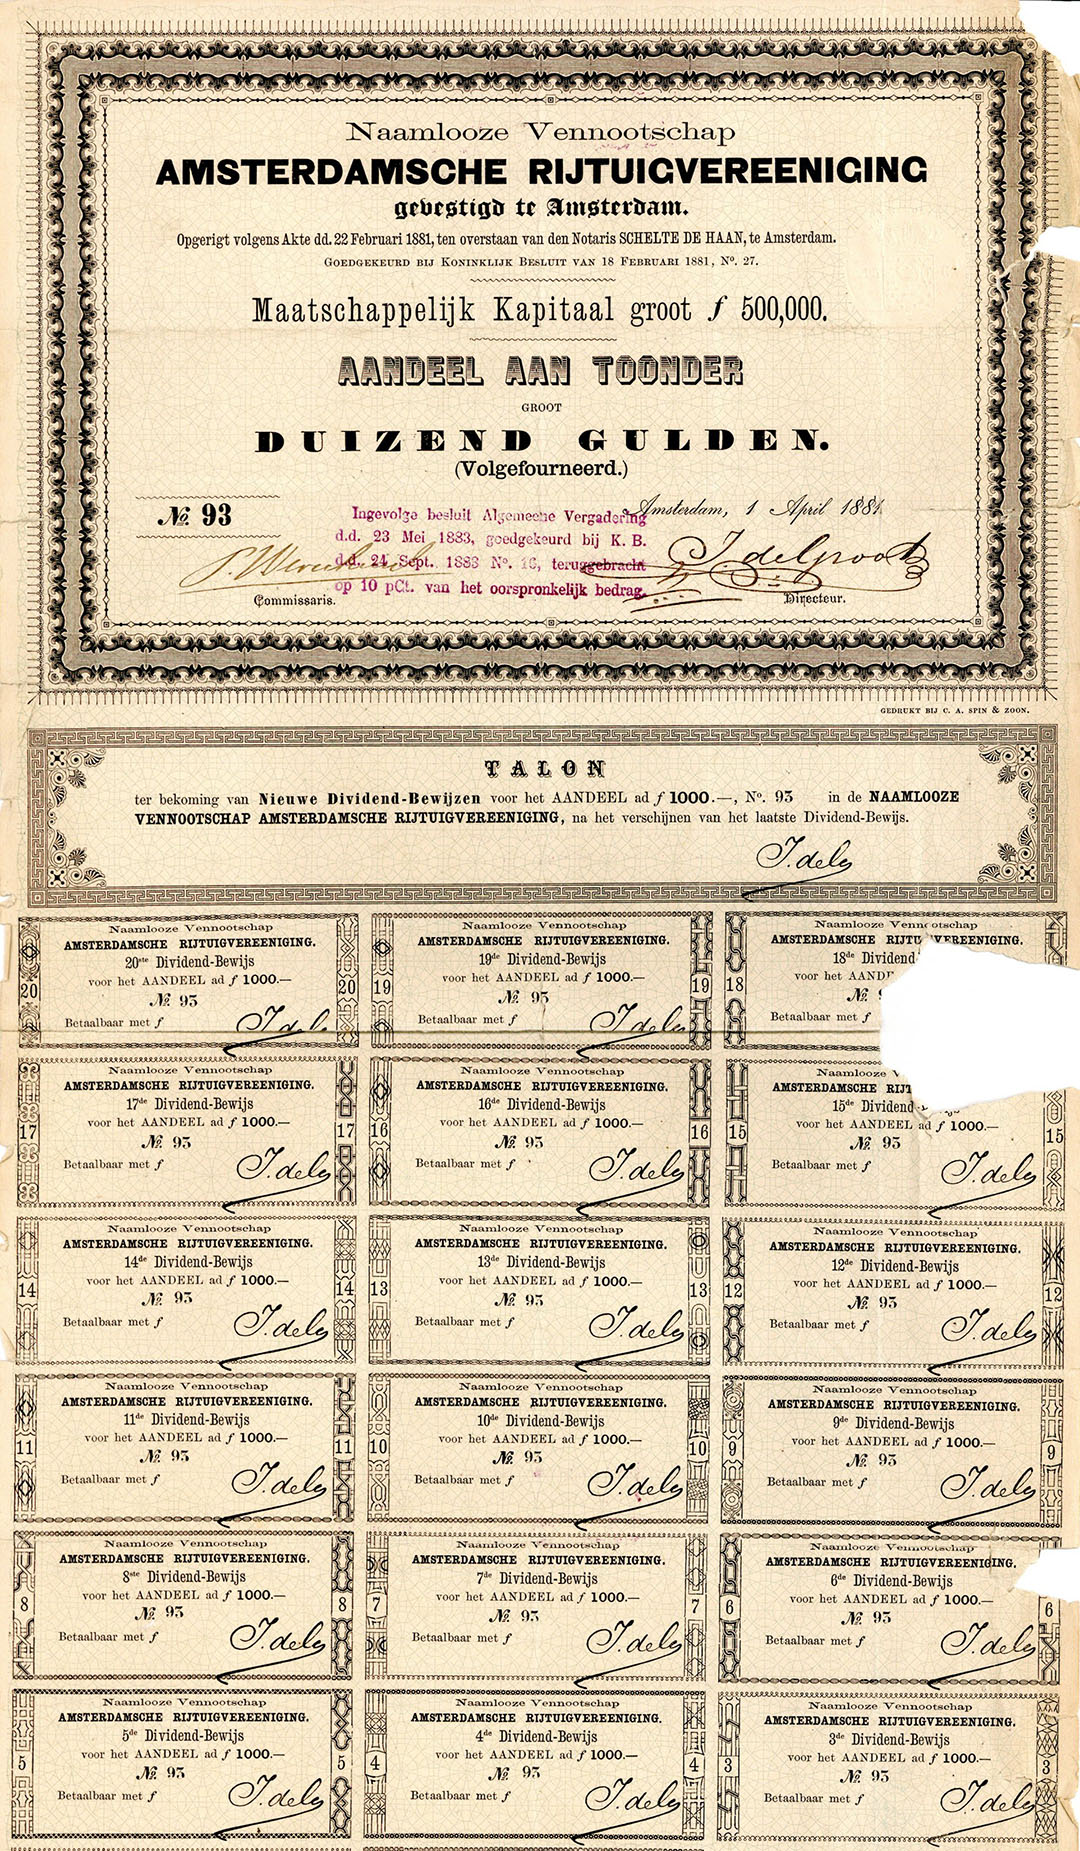 Naamlooze Vennootschap
AMSTERDAMSCHE RIJTUIGVEREENIGING
gevestigd te Amsterdam.
Opgerigt volgens Akte dd. 22 Februari 1881, ten overstaan van den Notaris SCHELTE DE HAAN, te Amsterdam.
GOEDGEKEURD BIJ KONINKLIJK BESLUIT VAN 18 FEBRUARI 1881, No. 27.
Maatschappelijk Kapitaal groot f 500,000.
AANDEEL AAN TOONDER
GROOT
DUIZEND GULDEN.
(Volgefourneerd.)
No. 93
Amsterdam, 1 April 1881.
Ingevolge besluit Algemeene Vergadering
d.d. 23 Mei 1883, goedgekeurd bij K. B.
d.d. 24 Sept. 1883 No. 16, teruggebracht
op 10 pCt. van het oorspronkelijk bedrag.
J. de Groot
Commissaris.
Directeur.
GEDRUKT BIJ C. A. SPIN & ZOON.
TALON
ter bekoming van Nieuwe Dividend-Bewijzen voor het AANDEEL ad f 1000.—, No. 93 in de NAAMLOOZE
VENNOOTSCHAP AMSTERDAMSCHE RIJTUIGVEREENIGING, na het verschijnen van het laatste Dividend-Bewijs.
J. de G
Naamlooze Vennootschap
AMSTERDAMSCHE RIJTUIGVEREENIGING.
20ste Dividend-Bewijs
voor het AANDEEL ad f 1000.—
20
20
No. 93
Betaalbaar met f
J. de G
Naamlooze Vennootschap
AMSTERDAMSCHE RIJTUIGVEREENIGING.
19de Dividend-Bewijs
voor het AANDEEL ad f 1000.—
19
19
No. 93
Betaalbaar met f
J. de G
Naamlooze Vennootschap
AMSTERDAMSCHE RIJTUIGVEREENIGING.
18de Dividend
voor het AAND
18
No.
Betaalbaar met f
Naamlooze Vennootschap
AMSTERDAMSCHE RIJTUIGVEREENIGING.
17de Dividend-Bewijs
voor het AANDEEL ad f 1000.—
17
17
No. 93
Betaalbaar met f
J. de G
Naamlooze Vennootschap
AMSTERDAMSCHE RIJTUIGVEREENIGING.
16de Dividend-Bewijs
voor het AANDEEL ad f 1000.—
16
16
No. 93
Betaalbaar met f
J. de G
Naamlooze V
AMSTERDAMSCHE RIJT
15de Dividend
voor het AANDEEL ad f 1000.—
15
15
No. 93
Betaalbaar met f
J. de G
Naamlooze Vennootschap
AMSTERDAMSCHE RIJTUIGVEREENIGING.
14de Dividend-Bewijs
voor het AANDEEL ad f 1000.—
14
14
No. 93
Betaalbaar met f
J. de G
Naamlooze Vennootschap
AMSTERDAMSCHE RIJTUIGVEREENIGING.
13de Dividend-Bewijs
voor het AANDEEL ad f 1000.—
13
13
No. 93
Betaalbaar met f
J. de G
Naamlooze Vennootschap
AMSTERDAMSCHE RIJTUIGVEREENIGING.
12de Dividend-Bewijs
voor het AANDEEL ad f 1000.—
12
12
No. 93
Betaalbaar met f
J. de G
Naamlooze Vennootschap
AMSTERDAMSCHE RIJTUIGVEREENIGING.
11de Dividend-Bewijs
voor het AANDEEL ad f 1000.—
11
11
No. 93
Betaalbaar met f
J. de G
Naamlooze Vennootschap
AMSTERDAMSCHE RIJTUIGVEREENIGING.
10de Dividend-Bewijs
voor het AANDEEL ad f 1000.—
10
10
No. 93
Betaalbaar met f
J. de G
Naamlooze Vennootschap
AMSTERDAMSCHE RIJTUIGVEREENIGING.
9de Dividend-Bewijs
voor het AANDEEL ad f 1000.—
9
9
No. 93
Betaalbaar met f
J. de G
Naamlooze Vennootschap
AMSTERDAMSCHE RIJTUIGVEREENIGING.
8ste Dividend-Bewijs
voor het AANDEEL ad f 1000.—
8
8
No. 93
Betaalbaar met f
J. de G
Naamlooze Vennootschap
AMSTERDAMSCHE RIJTUIGVEREENIGING.
7de Dividend-Bewijs
voor het AANDEEL ad f 1000.—
7
7
No. 93
Betaalbaar met f
J. de G
Naamlooze Vennootschap
AMSTERDAMSCHE RIJTUIGVEREENIGING.
6de Dividend-Bewijs
voor het AANDEEL ad f 1000.—
6
6
No. 93
Betaalbaar met f
J. de G
Naamlooze Vennootschap
AMSTERDAMSCHE RIJTUIGVEREENIGING.
5de Dividend-Bewijs
voor het AANDEEL ad f 1000.—
5
5
No. 93
Betaalbaar met f
J. de G
Naamlooze Vennootschap
AMSTERDAMSCHE RIJTUIGVEREENIGING.
4de Dividend-Bewijs
voor het AANDEEL ad f 1000.—
4
4
No. 93
Betaalbaar met f
J. de G
Naamlooze Vennootschap
AMSTERDAMSCHE RIJTUIGVEREENIGING.
3de Dividend-Bewijs
voor het AANDEEL ad f 1000.—
3
3
No. 93
Betaalbaar met f
J. de G